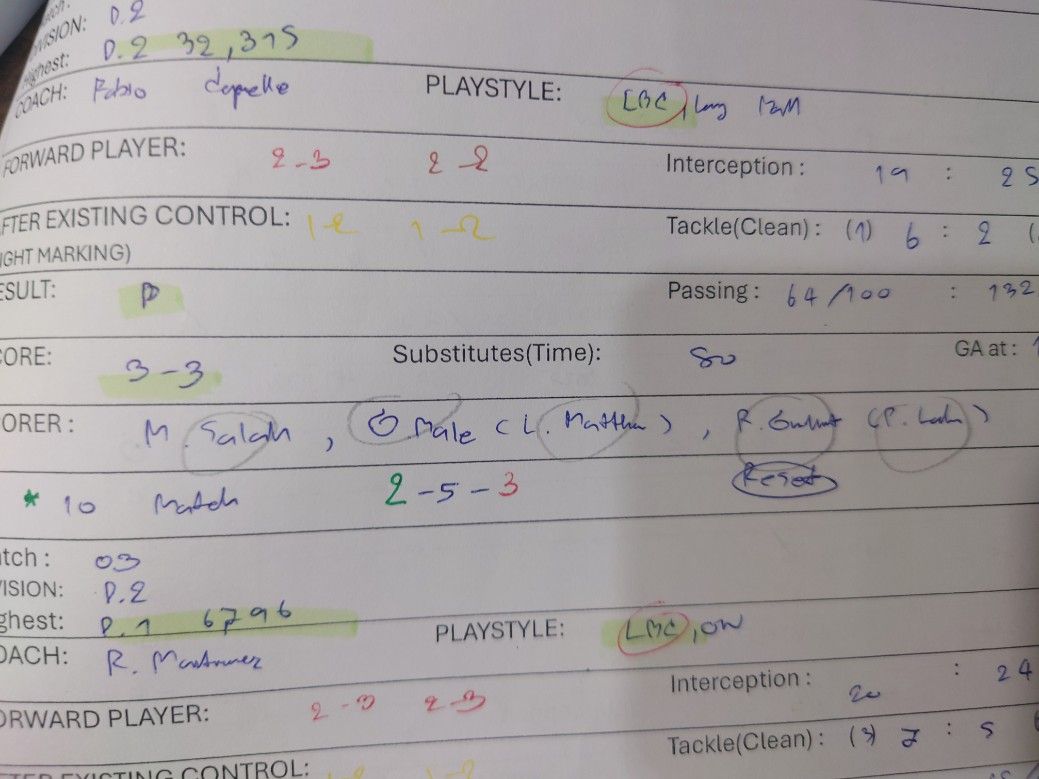 D.2
VISION:
D.2 32,315
ghest:
COACH: Fabio Capello PLAYSTYLE: LBC, Long
FORWARD PLAYER: 2-3 2-2 Interception : 19 : 25
FTER EXISTING CONTROL: 1-2 1-2 Tackle(Clean) : (1) 6 : 2 (
IGHT MARKING)
ESULT: D Passing : 64/100 : 132
CORE: 3-3 Substitutes(Time): 80 GA at : 1
ORER : M. Salah , (L. Matthu) , R. Gullit (P. Lahm)
* 10 Match 2-5-3 Reset
tch : 03
ISION: D.2
ghest: D.1 6796 PLAYSTYLE: LBC, OW
OACH: R. Martinez
ORWARD PLAYER: 2-3 2-3 Interception : 20 : 24
Tackle(Clean) : (3) 7 : 5
TER EXISTING CONTROL: 1-2 1-2